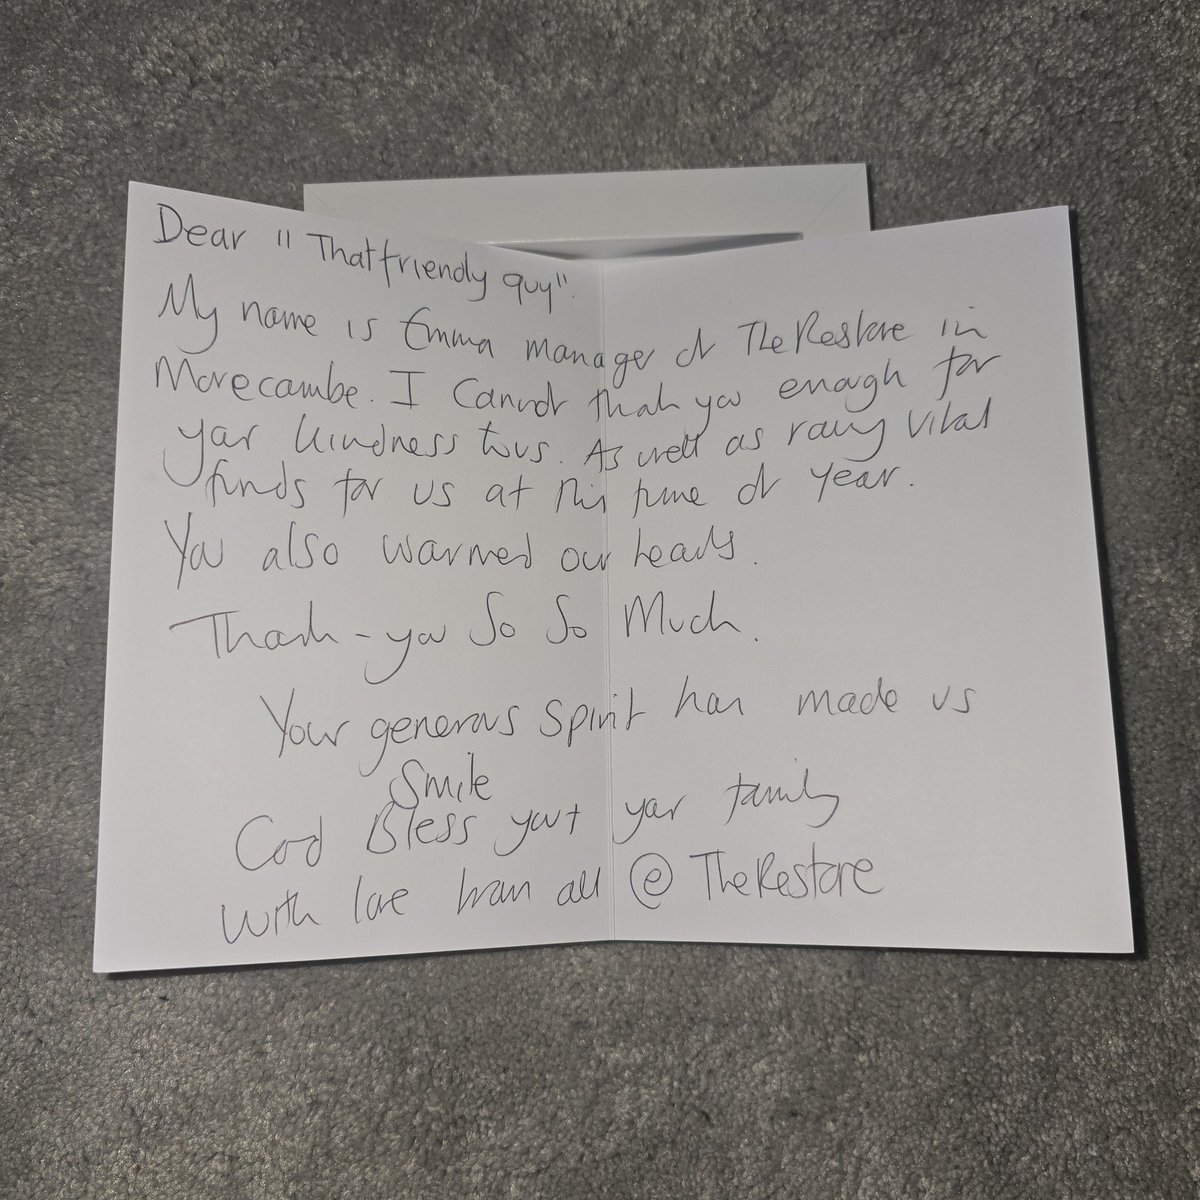 Dear "Thatfriendly guy".
My name is Emma manager of TheRestore in
Morecambe. I cannot thank you enough for
your kindness to us. As well as raising vital
funds for us at this time of year.
You also warmed our hearts.
Thank-you So So Much.
Your generous spirit has made us
smile
God Bless you + your family
With love from all @ TheRestore